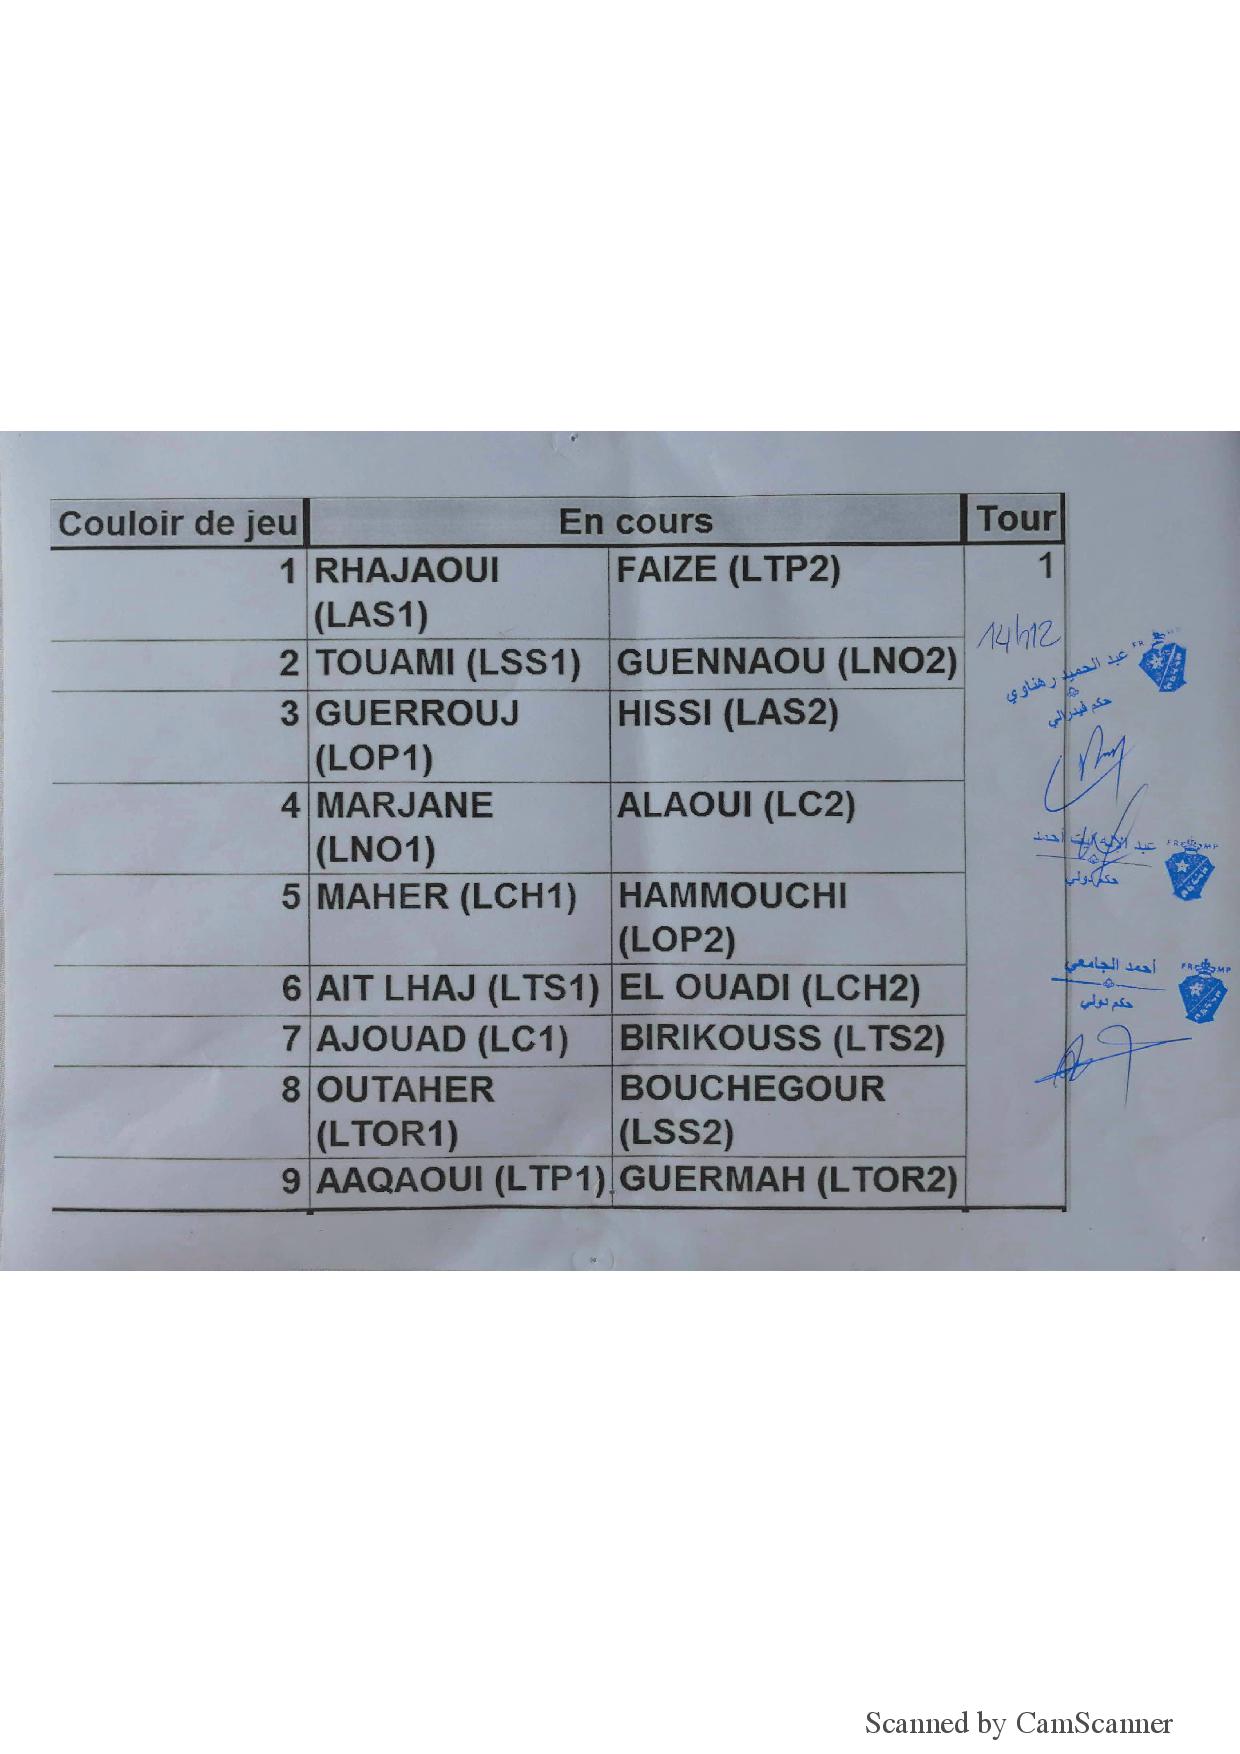 Couloir de jeu En cours Tour
1 RHAJAOUI FAIZE (LTP2) 1
(LAS1)
14h12
2 TOUAMI (LSS1) GUENNAOU (LNO2)
عبد الحميد رهناوي
حكم فيدرالي
3 GUERROUJ HISSI (LAS2)
(LOP1)
4 MARJANE ALAOUI (LC2)
(LNO1)
عبد الاله ايت أحمد
FR MP
حكم دولي
5 MAHER (LCH1) HAMMOUCHI
(LOP2)
أحمد الجامعي
FR MP
حكم دولي
6 AIT LHAJ (LTS1) EL OUADI (LCH2)
7 AJOUAD (LC1) BIRIKOUSS (LTS2)
8 OUTAHER BOUCHEGOUR
(LTOR1) (LSS2)
9 AAQAOUI (LTP1) GUERMAH (LTOR2)
Scanned by CamScanner